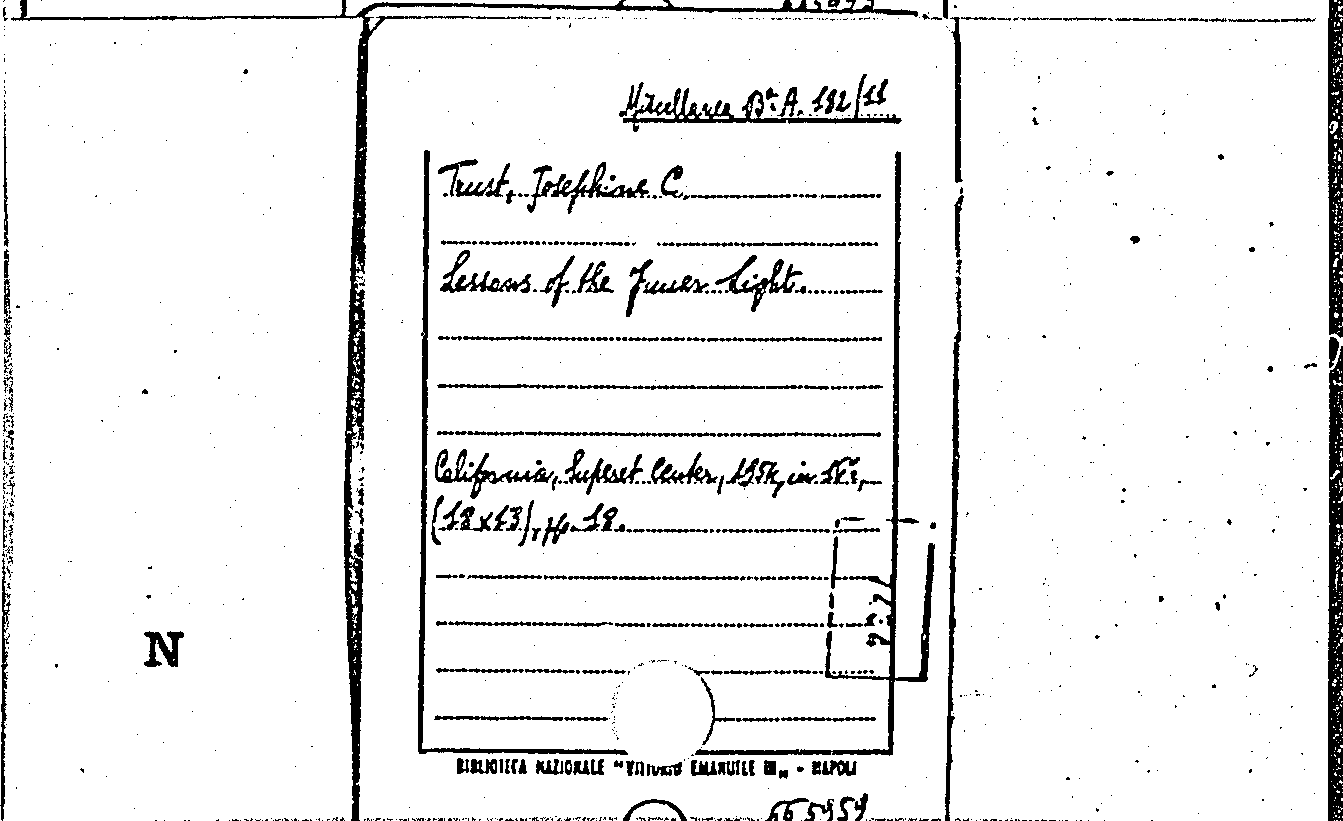 Miscellanea Bª A. 182/11
Trust, Josephine C.
Lessons of the Inner Light.
California, Superet Center, 195
(18x13), pp. 18.
N
BIBLIOTECA NAZIONALE "VITTORIO EMANUELE III" - NAPOLI
665959